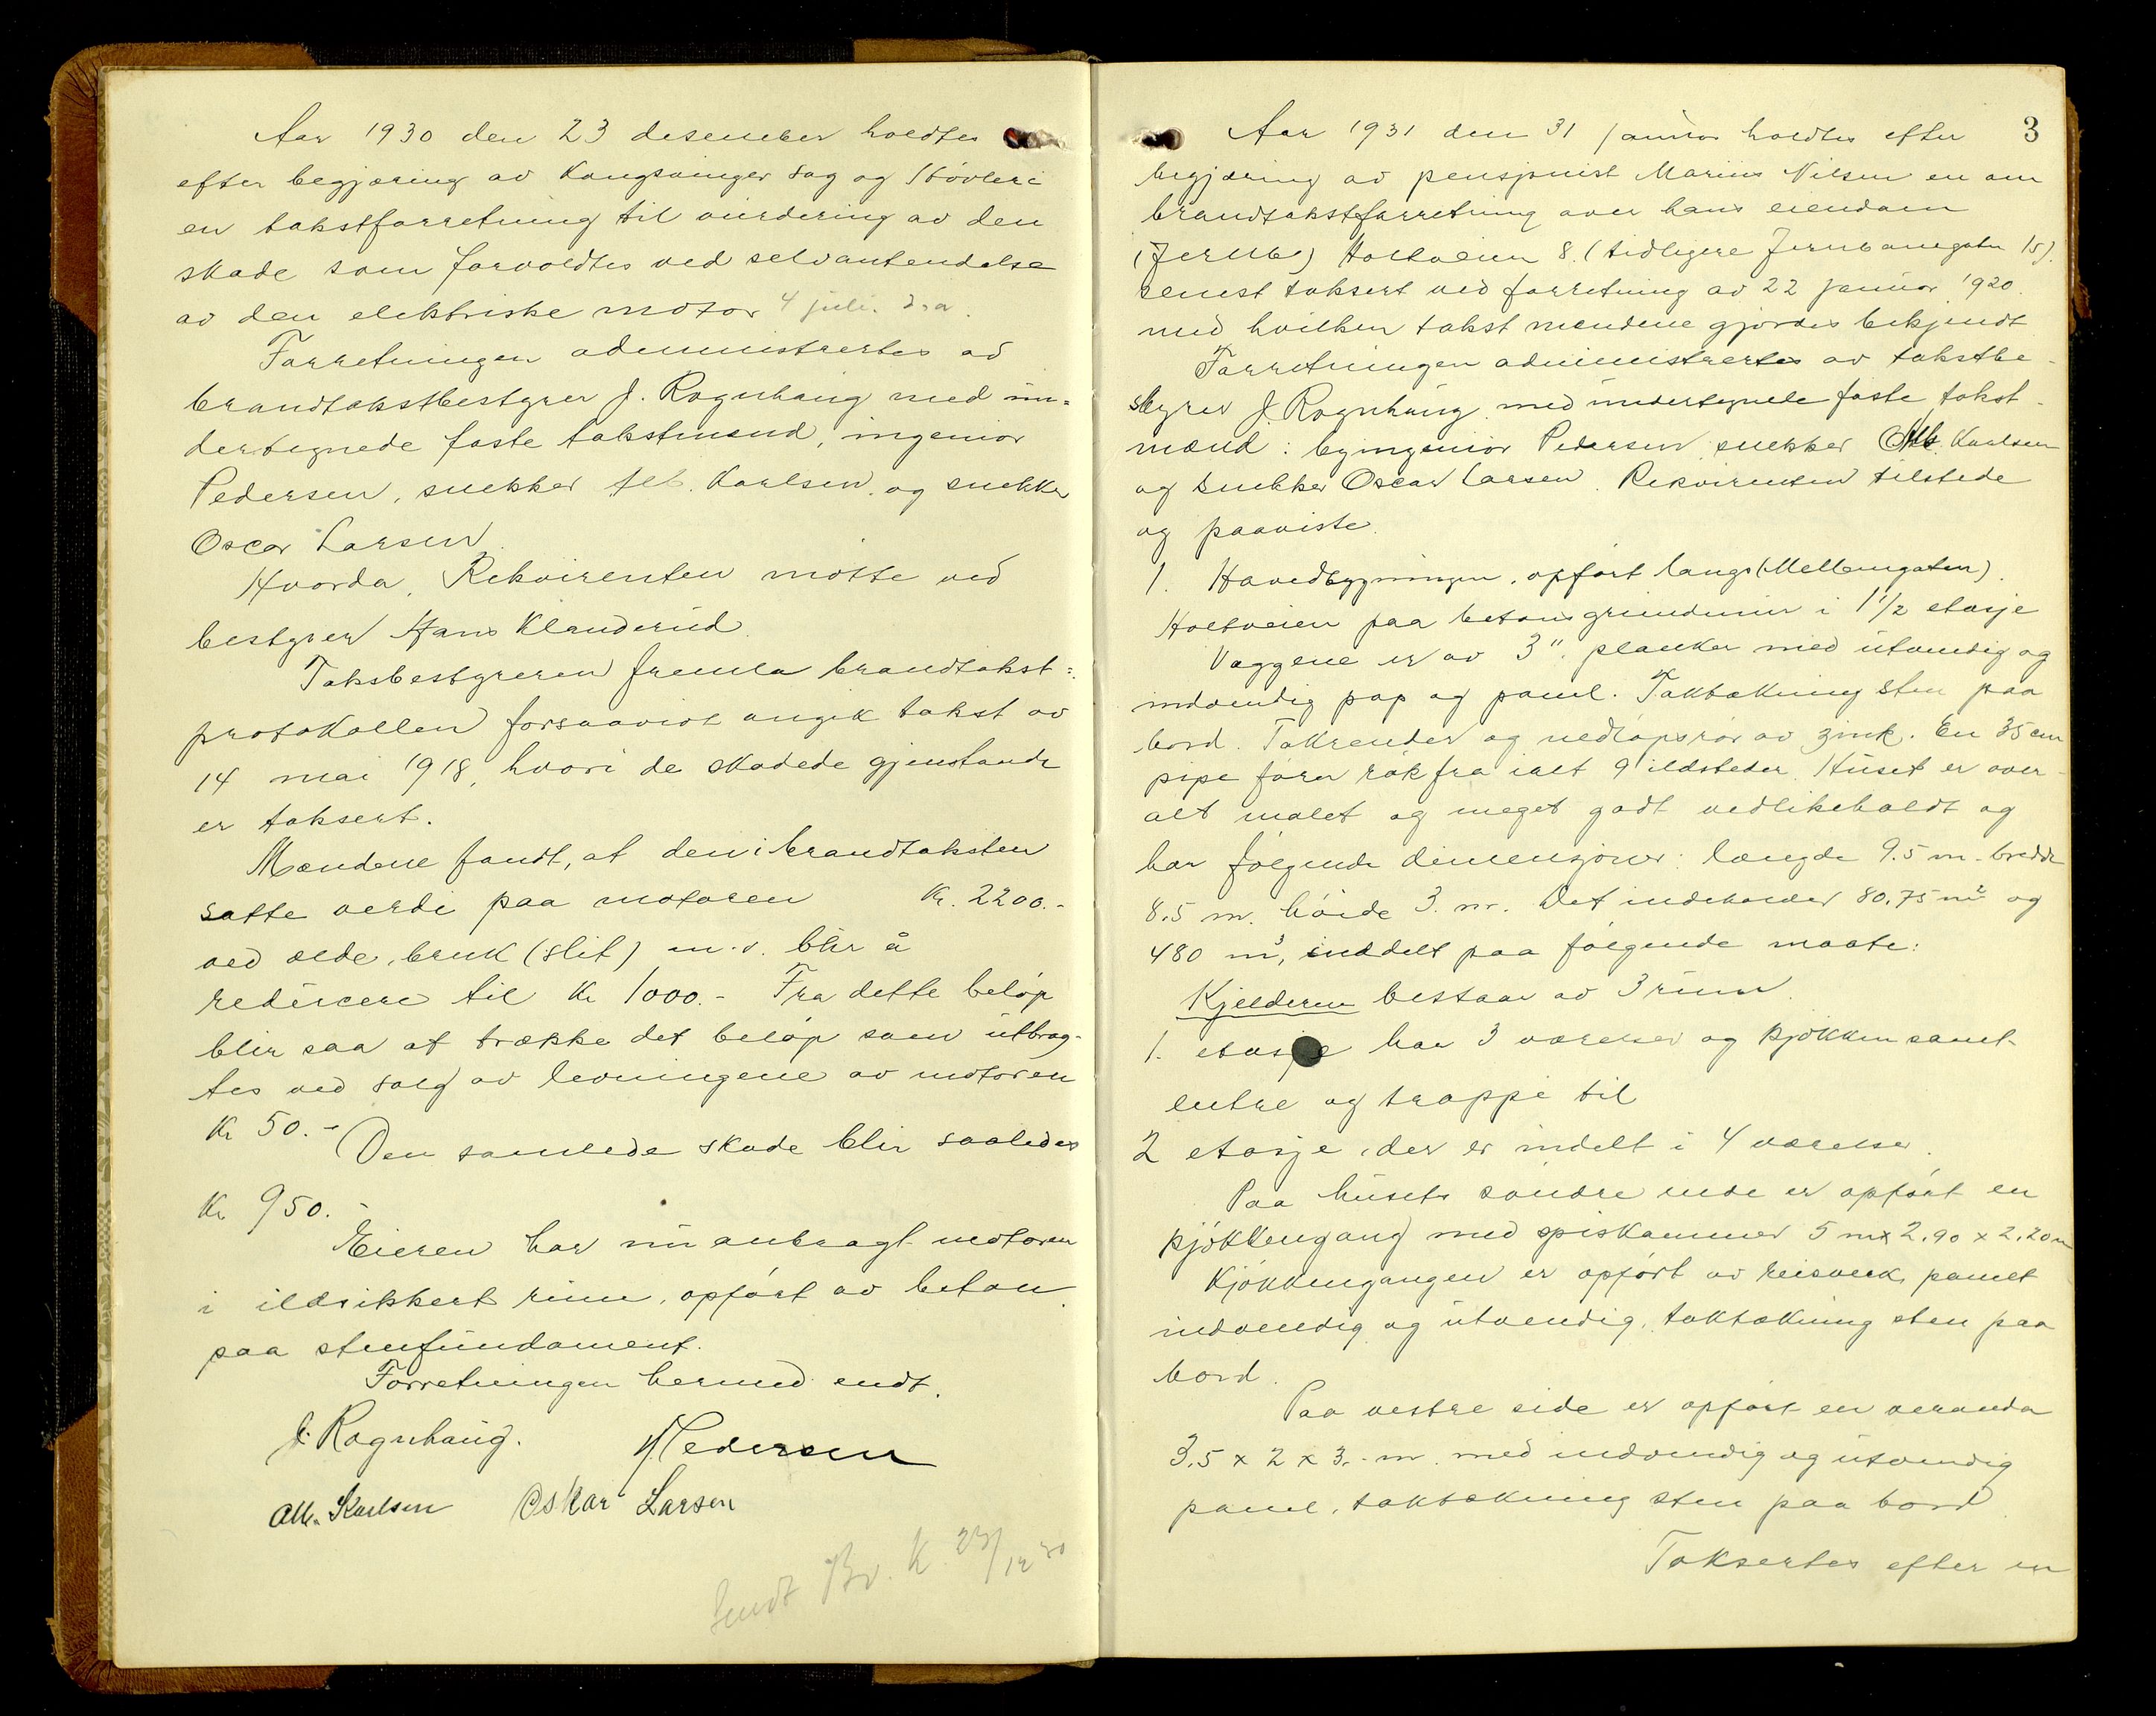 Aar 1930 den 23 desember holdtes
efter begjæring av Kongsvinger sag og Hövleri
en takstforretning til vurdering av den
skade som forvoldtes ved selvantendelse
av den elektriske motor 4 juli. d.a.
Forretningen administrertes av
brandtakstbestyrer J. Rognhaug med un=
dertegnede faste takstmænd, ingeniör
Pedersen, snekker Alb. Karlsen, og snekker
Oscar Larsen.
Hvorda, Rekvirenten mötte ved
bestyrer Hans Klanderud.
Takstbestyreren fremla brandtakst=
protokollen forsaavidt angik takst av
14 mai 1918, hvori de skadede gjenstande
er taksert.
Mændene fandt, at den i brandtaksten
satte verdi paa motoren Kr. 2200.-
ved ælde, bruk (slit) m.v. blir å
redusere til Kr 1000.- Fra dette belöp
blir saa at trække det belöp som utbrag-
tes ved salg av levningene av motoren
Kr 50.-
Den samlede skade blir saaledes
Kr 950.-
Eieren har nu anbragt motoren
i ildsikkert rum, opfört av beton
paa stenfundament.
Forretningen hermed endt.
J. Rognhaug. Pedersen
Alb. Karlsen Oskar Larsen
Sendt Br. K. 23/12 30
3
Aar 1931 den 31 januar holdtes efter
begjæring av pensjonist Marius Nilsen en om
brandtakstforretning over hans eiendom
Holtveien 8. (tidligere Jernbanegaten 15).
senest taksert ved forretning av 22 januar 1920.
med hvilken takst mændene gjordes bekjendt
Forretningen administrertes av takstbe-
styrer J. Rognhaug med undertegnede faste takst-
mænd: byingeniör Pedersen, snekker Alb. Karlsen
og snekker Oscar Larsen. Rekvirenten tilstede
og paaviste.
1. Hovedbygningen, opfört langs (Mellemgaten)
Holtveien paa betongrundmur i 1 1/2 etasje
Væggene er av 3" planker med utvendig og
indvendig pap og panel. Taktækning sten paa
bord. Takrender og nedlöpsrör av zink. En 35 cm
pipe förer rök fra ialt 9 ildsteder. Huset er over-
alt malet og meget godt vedlikeholdt og
har fölgende dimensjoner: længde 9.5 m. bredde
8.5 m. höide 3. m. Det indeholder 80.75 m² og
480 m³, inddelt paa fölgende maate:
Kjelderen bestaar av 3 rum.
1. etasje har 3 værelser og kjökken samt
entre og trappe til
2 etasje, der er indelt i 4 værelser.
Paa husets söndre ende er opfört en
kjökkengang med spiskammer 5 m x 2.90 x 2.20 m
Kjökkengangen er opfört av reisverk, panelt
indvendig og utvendig, taktækning sten paa
bord.
Paa vestre side er opfört en veranda
3.5 x 2 x 3.- m. med indvendig og utvendig
panel, taktækning sten paa bord
Taksertes efter en